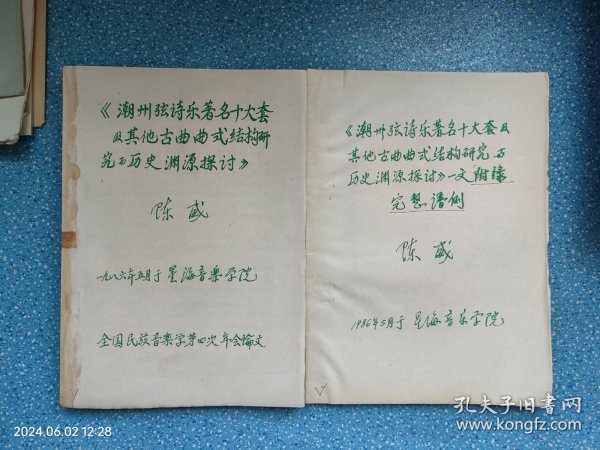 《潮州弦诗乐著名十大套
及其他古曲曲式结构研
究与历史渊源探讨》
陈威
一九八六年五月于星海音乐学院
全国民族音乐学第四次年会论文
《潮州弦诗乐著名十大套及
其他古曲曲式结构研究与
历史渊源探讨》一文附录
完整谱例
陈威
1986年5月于星海音乐学院
2024.06.02 12:28
孔夫子旧书网
www.kongfz.com